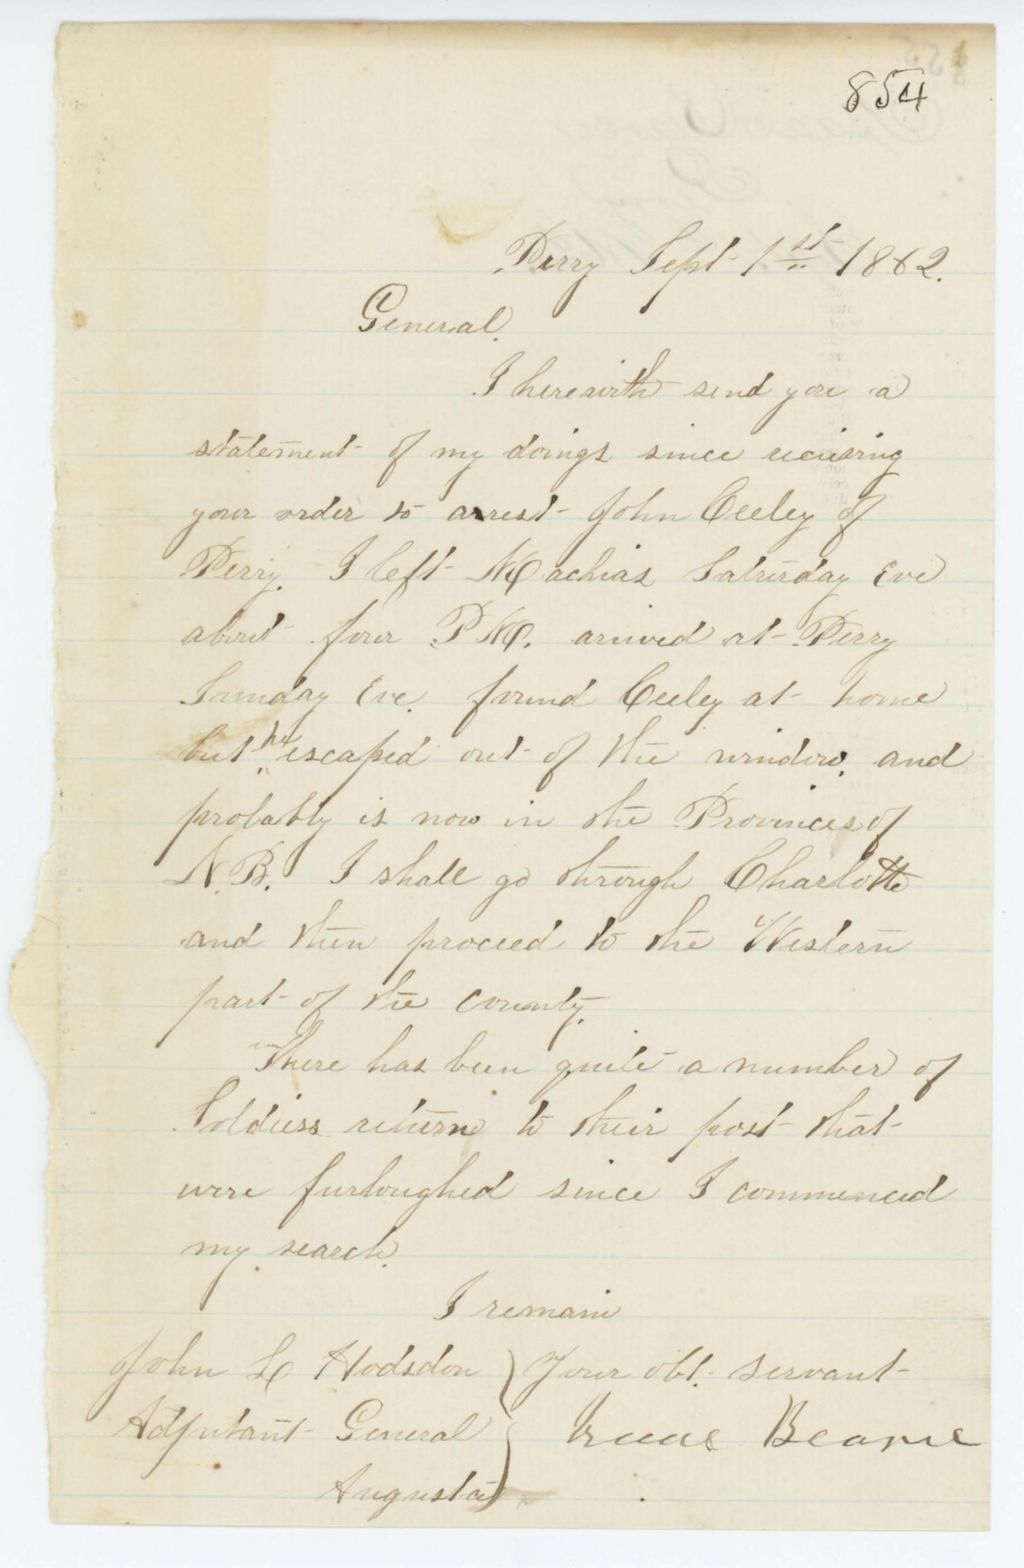 854
Perry Sept 1st 1862.
General.
I herewith send you a
statement of my doings since receiving
your order to arrest John Ceeley of
Perry. I left Machias Saturday Eve
about four P.M. arrived at Perry
Sunday Eve. found Ceeley at home
but he escaped out of the window, and
probably is now in the Provinces of
N.B. I shall go through Charlotte
and then proceed to the Western
part of the county.
There has been quite a number of
Soldiers return to their post that
were furloughed since I commenced
my search.
I remain
John L Hodsdon } Your obt. servant
Adjutant General } Beane
Augusta